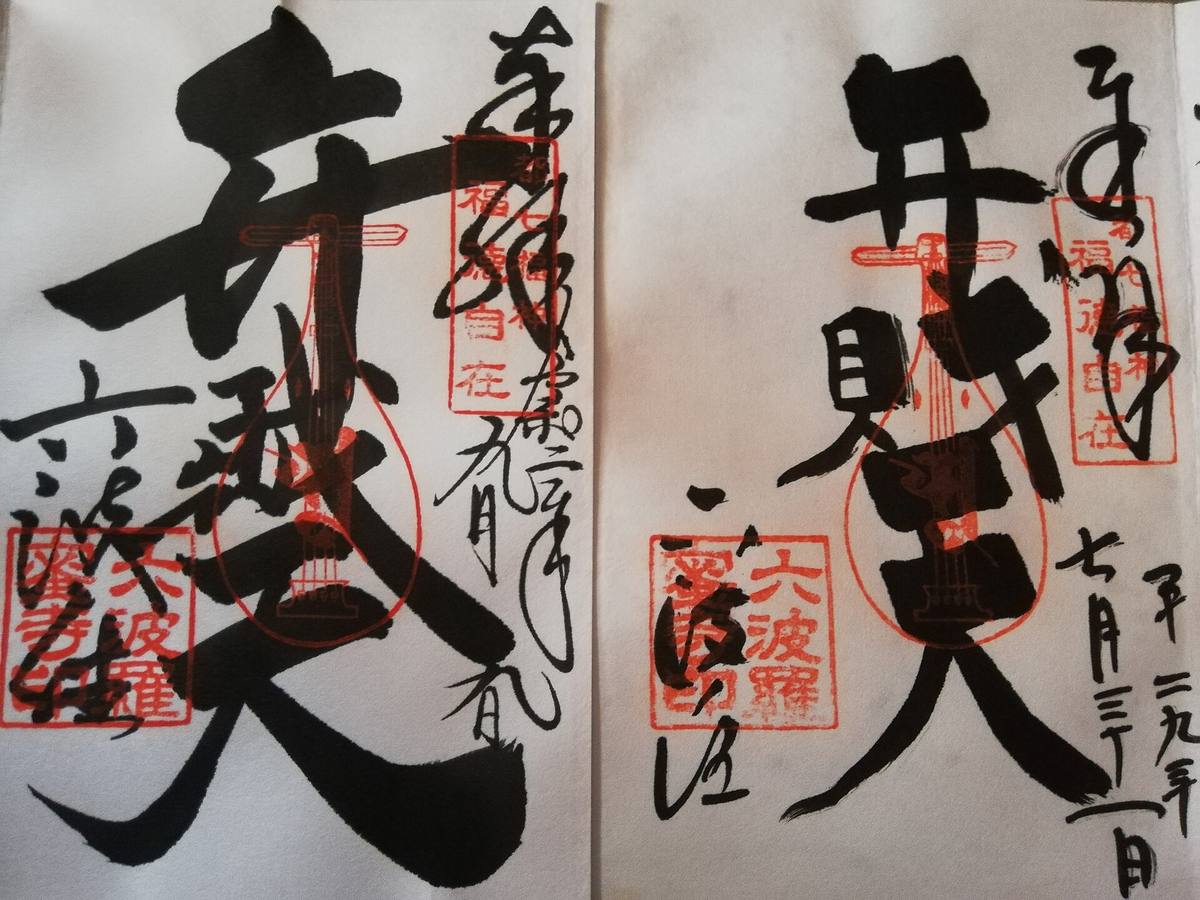 奉拝
都七福神
福徳自在
平二九年
七月三十一日
弁財天
六波羅
蜜寺印
奉拝
都七福神
福徳自在
二年
九月
九日
弁財天
六波羅
蜜寺印